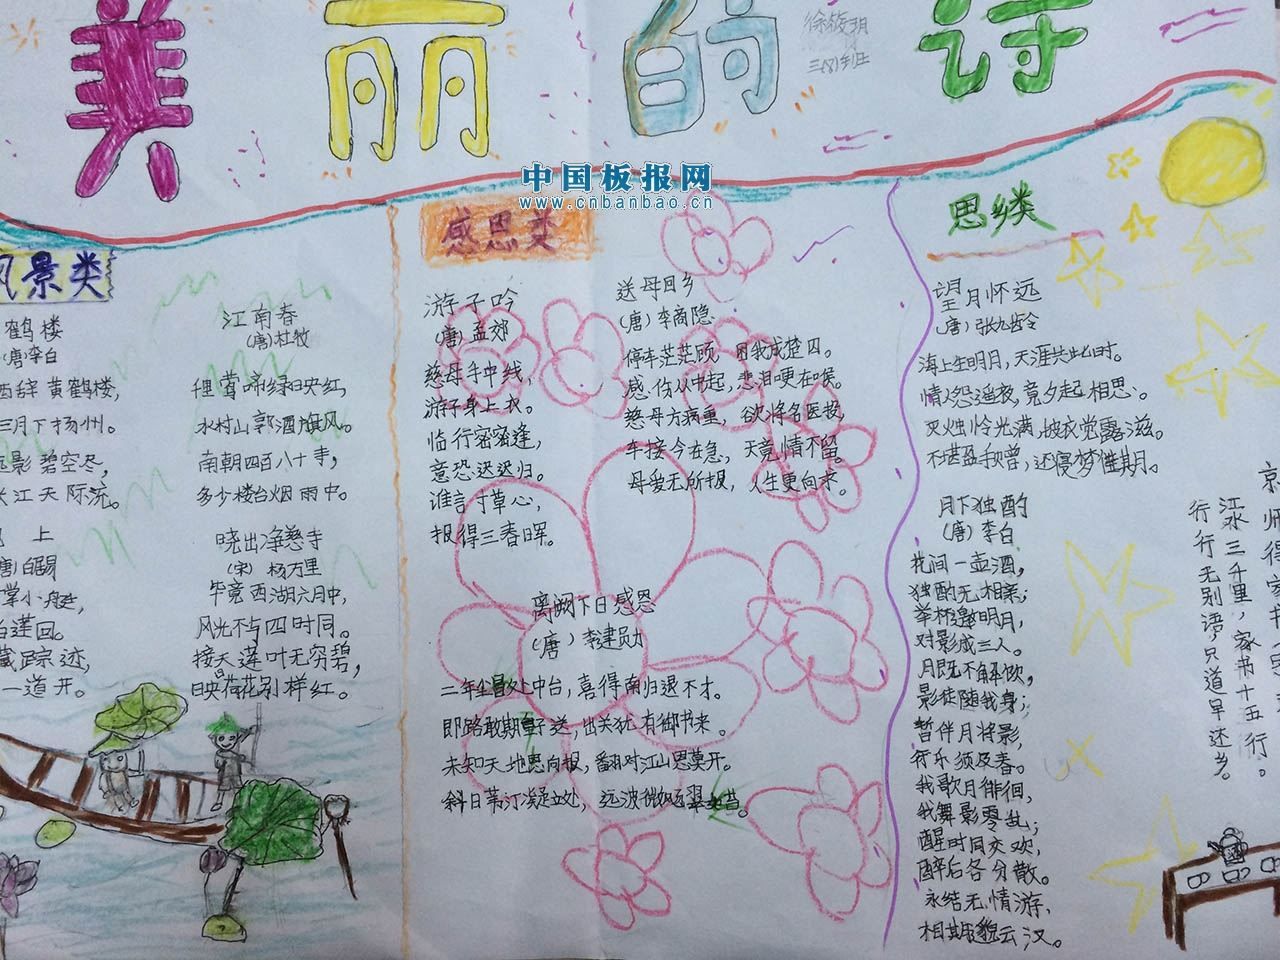 美丽的诗
徐筱玥
三(8)班
中国板报网
www.cnbanbao.cn
风景类
鹤楼
(唐)李白
西辞黄鹤楼,
三月下扬州。
远影碧空尽,
长江天际流。
上
唐)白居易
掌小艇,
白莲回。
藏踪迹,
一道开。
江南春
(唐)杜牧
哩莺啼绿映红,
水村山郭酒旗风。
南朝四百八十寺,
多少楼台烟雨中。
晓出净慈寺
(宋)杨万里
毕竟西湖六月中,
风光不与四时同。
接天莲叶无穷碧,
映日荷花别样红。
感恩类
游子吟
(唐)孟郊
慈母手中线,
游子身上衣。
临行密密逢,
意恐迟迟归。
谁言寸草心,
报得三春晖。
送母回乡
(唐)李商隐
停车茫茫顾,困我成楚囚。
感伤从中起,悲泪哽在喉。
慈母方病重,欲将名医投,
车接今在急,天竟情不留。
母爱无所报,人生更何求。
离阙下日感恩
(唐)李建勋
二年尘冒处中台,喜得南归退不才。
即路敢期童子送,出关犹有御书来。
未知天地恩何报,翻对江山思莫开。
斜日苇汀凝立处,远波微飐翠如苔。
思乡类
望月怀远
(唐)张九龄
海上生明月,天涯共此时。
情人怨遥夜,竟夕起相思。
灭烛怜光满,披衣觉露滋。
不堪盈手赠,还寝梦佳期。
月下独酌
(唐)李白
花间一壶酒,
独酌无相亲;
举杯邀明月,
对影成三人。
月既不解饮,
影徒随我身;
暂伴月将影,
行乐须及春。
我歌月徘徊,
我舞影零乱;
醒时同交欢,
醉后各分散。
永结无情游,
相期邈云汉。
京师得家书
江水三千里,家书十五行。
行行无别语,只道早还乡。